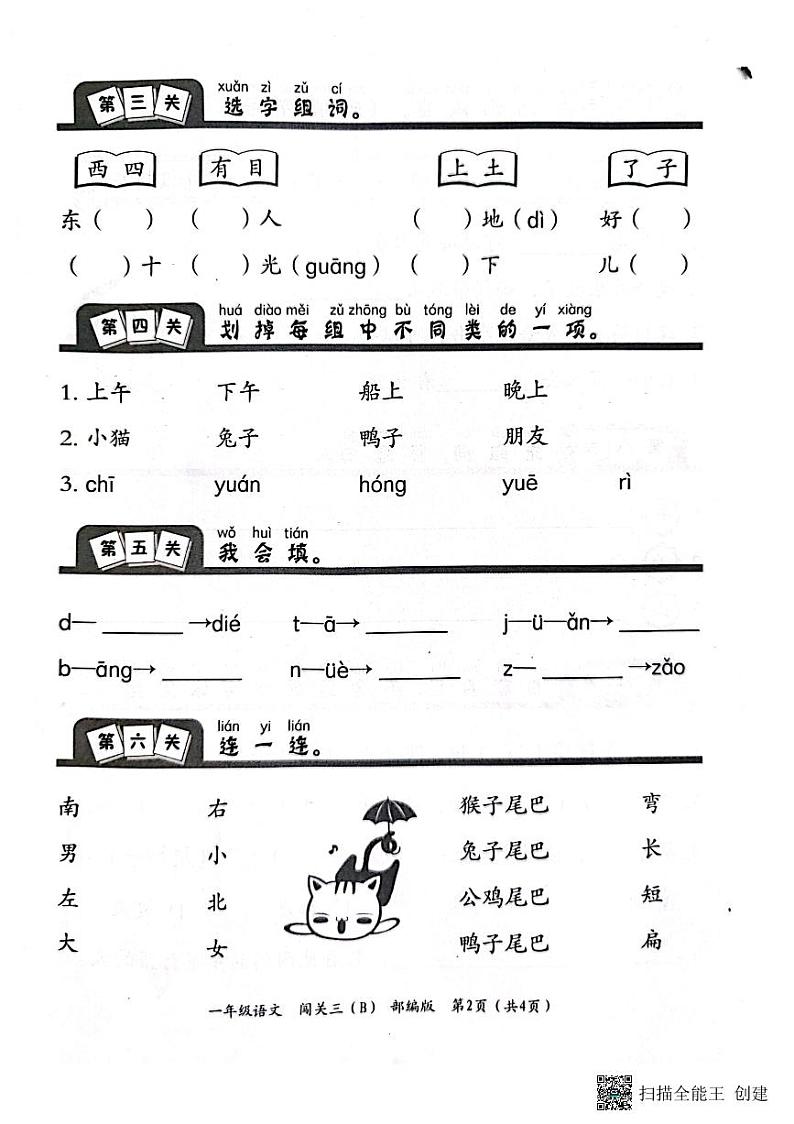 xuǎn zì zǔ cí
第三关 选字组词。
西四 有目 上土 了子
东（ ） （ ）人 （ ）地（dì） 好（ ）
（ ）十 （ ）光（guāng） （ ）下 儿（ ）
huá diào měi zǔ zhōng bù tóng lèi de yí xiàng
第四关 划掉每组中不同类的一项。
1. 上午 下午 船上 晚上
2. 小猫 兔子 鸭子 朋友
3. chī yuán hóng yuē rì
wǒ huì tián
第五关 我会填。
d— ______ →dié t—ā→ ______ j—ü—ǎn→ ______
b—āng→ ______ n—üè→ ______ z— ______ →zǎo
lián yi lián
第六关 连一连。
南 右 猴子尾巴 弯
男 小 兔子尾巴 长
左 北 公鸡尾巴 短
大 女 鸭子尾巴 扁
一年级语文 闯关三（B） 部编版 第2页（共4页）
扫描全能王 创建